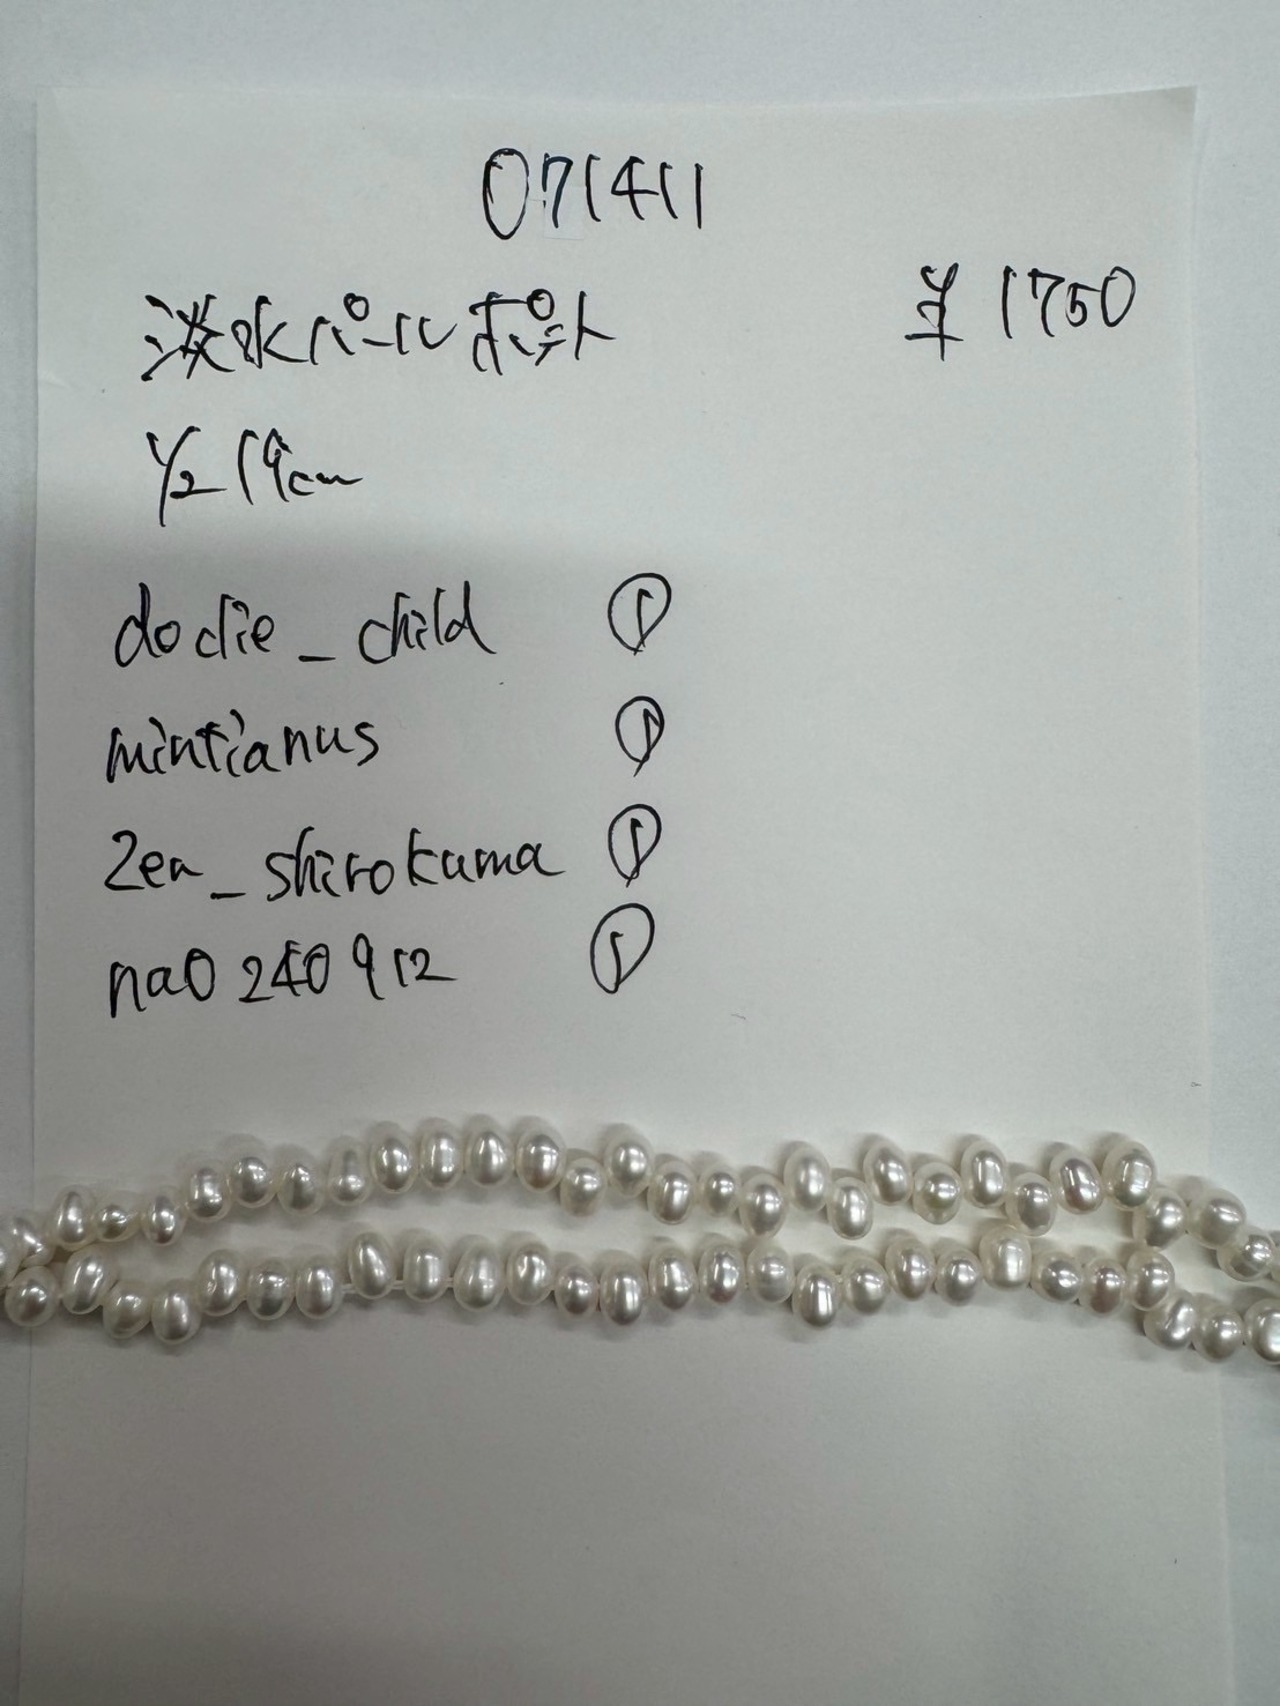 071411
淡水パールポテト ¥1750
1/2 19cm
doclie_child ①
mintianus ①
Zen_shirokuma ①
na0240912 ①